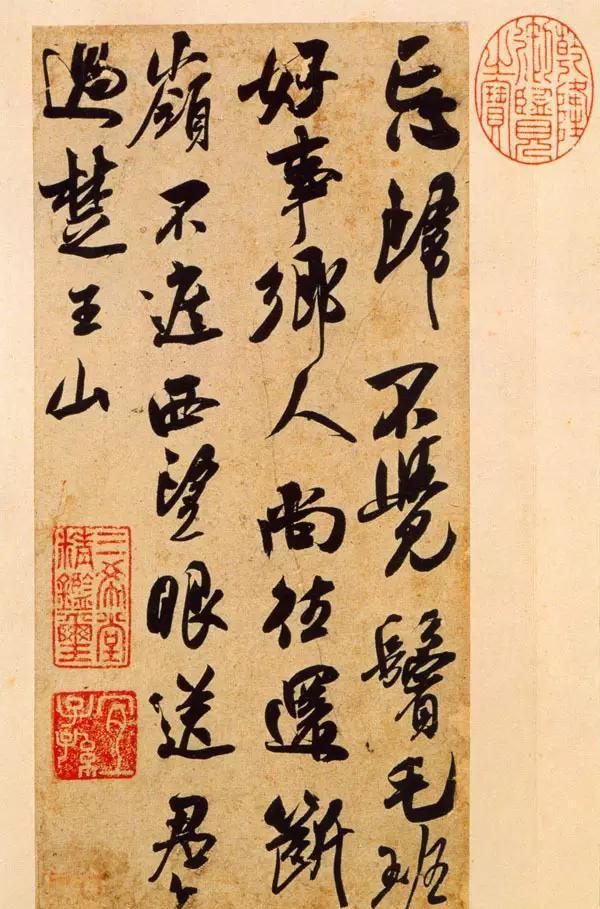 乾隆御覽之寶
忘歸不覺鬢毛班
好事鄉人尚往還斷
嶺不遮西望眼送君
過楚王山
三希堂精鑑璽
宜子孫